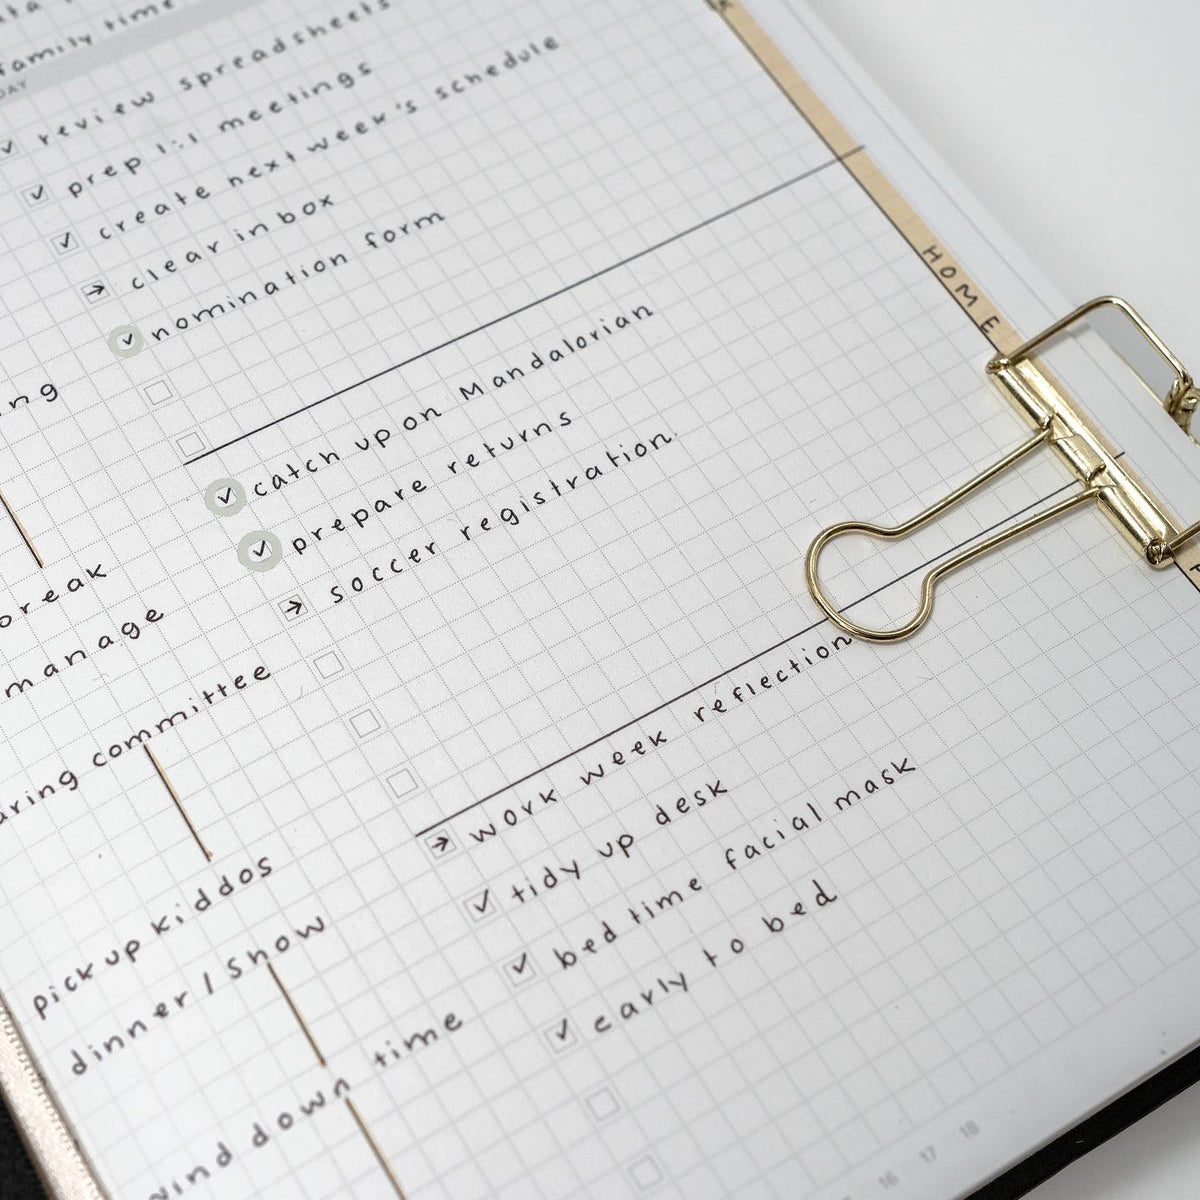 family time
DAY
review spreadsheets
prep 1:1 meetings
create next week's schedule
clear inbox
nomination form
HOME
catch up on Mandalorian
prepare returns
soccer registration
work week reflection
tidy up desk
bedtime facial mask
early to bed
manage
committee
pick up kiddos
dinner / show
wind down time
16 17 18